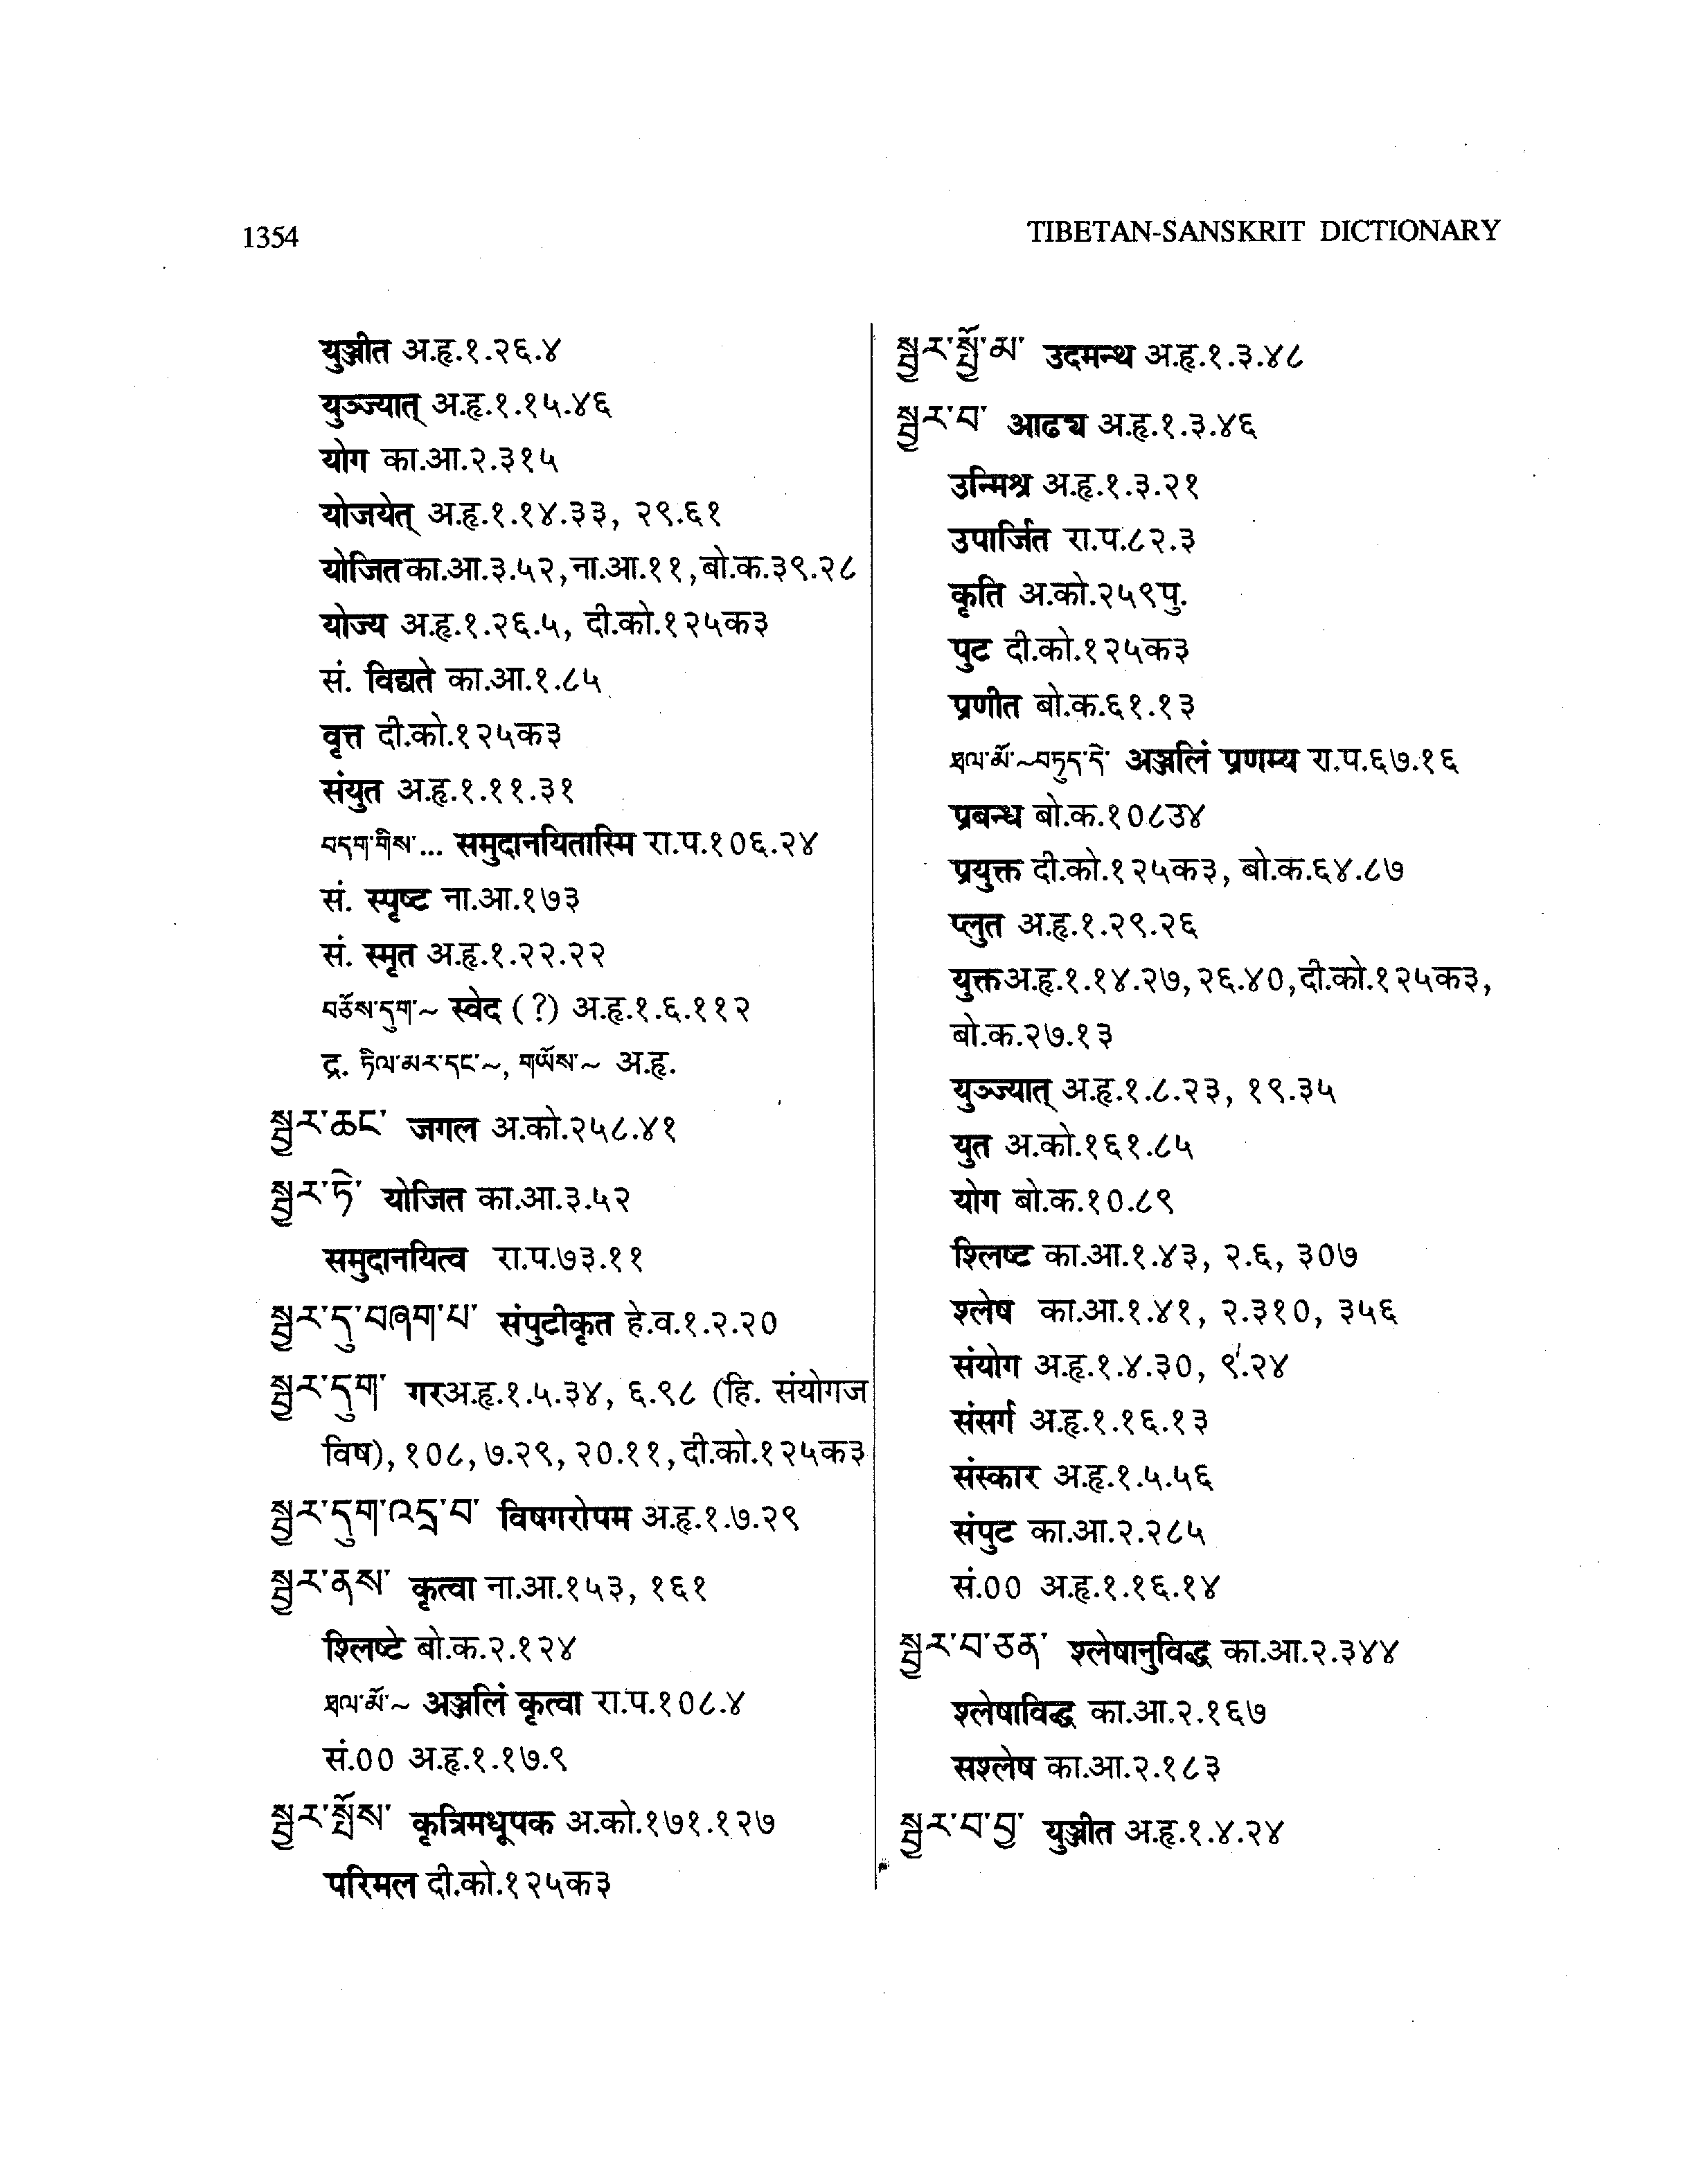 1354
TIBETAN-SANSKRIT DICTIONARY
युञ्जीत अ.हृ.१.२६.४
युञ्ज्यात् अ.हृ.१.१५.४६
योग का.आ.२.३१५
योजयेत् अ.हृ.१.१४.३३, २९.६१
योजित का.आ.३.५२, ना.आ.११, बो.क.३९.२८
योज्य अ.हृ.१.२६.५, दी.को.१२५क३
सं. विद्यते का.आ.१.८५
वृत्त दी.को.१२५क३
संयुत अ.हृ.१.११.३१
བདག་གིས་... समुदानयितास्मि रा.प.१०६.२४
सं. स्पृष्ट ना.आ.१७३
सं. स्मृत अ.हृ.१.२२.२२
བཅོས་དུག་~ स्वेद (?) अ.हृ.१.६.११२
द्र. ཏིལ་མར་དང་~, གཡོས་~ अ.हृ.
སྦྱར་ཆང་ जगल अ.को.२५८.४१
སྦྱར་ཏེ་ योजित का.आ.३.५२
समुदानयित्व रा.प.७३.११
སྦྱར་དུ་བཞག་པ་ संपुटीकृत हे.व.१.२.२०
སྦྱར་དུག་ गर अ.हृ.१.५.३४, ६.९८ (हि. संयोगज
विष), १०८, ७.२९, २०.११, दी.को.१२५क३
སྦྱར་དུག་འདྲ་བ་ विषगरोपम अ.हृ.१.७.२९
སྦྱར་ནས་ कृत्वा ना.आ.१५३, १६१
श्लिष्टे बो.क.२.१२४
ཐལ་མོ་~ अञ्जलिं कृत्वा रा.प.१०८.४
सं.०० अ.हृ.१.१७.९
སྦྱར་སྤོས་ कृत्रिमधूपक अ.को.१७१.१२७
परिमल दी.को.१२५क३
སྦྱར་སྦྱོམ་ उदमन्थ अ.हृ.१.३.४८
སྦྱར་བ་ आढ्य अ.हृ.१.३.४६
उन्मिश्र अ.हृ.१.३.२१
उपार्जित रा.प.८२.३
कृति अ.को.२५९पु.
पुट दी.को.१२५क३
प्रणीत बो.क.६१.१३
ཐལ་མོ་~བཏུད་དེ་ अञ्जलिं प्रणम्य रा.प.६७.१६
प्रबन्ध बो.क.१०८उ४
प्रयुक्त दी.को.१२५क३, बो.क.६४.८७
प्लुत अ.हृ.१.२९.२६
युक्त अ.हृ.१.१४.२७, २६.४०, दी.को.१२५क३,
बो.क.२७.१३
युञ्ज्यात् अ.हृ.१.८.२३, १९.३५
युत अ.को.१६१.८५
योग बो.क.१०.८९
श्लिष्ट का.आ.१.४३, २.६, ३०७
श्लेष का.आ.१.४१, २.३१०, ३५६
संयोग अ.हृ.१.४.३०, ९.२४
संसर्ग अ.हृ.१.१६.१३
संस्कार अ.हृ.१.५.५६
संपुट का.आ.२.२८५
सं.०० अ.हृ.१.१६.१४
སྦྱར་བ་ཅན་ श्लेषानुविद्ध का.आ.२.३४४
श्लेषाविद्ध का.आ.२.१६७
सश्लेष का.आ.२.१८३
སྦྱར་བ་བྱ་ युञ्जीत अ.हृ.१.४.२४